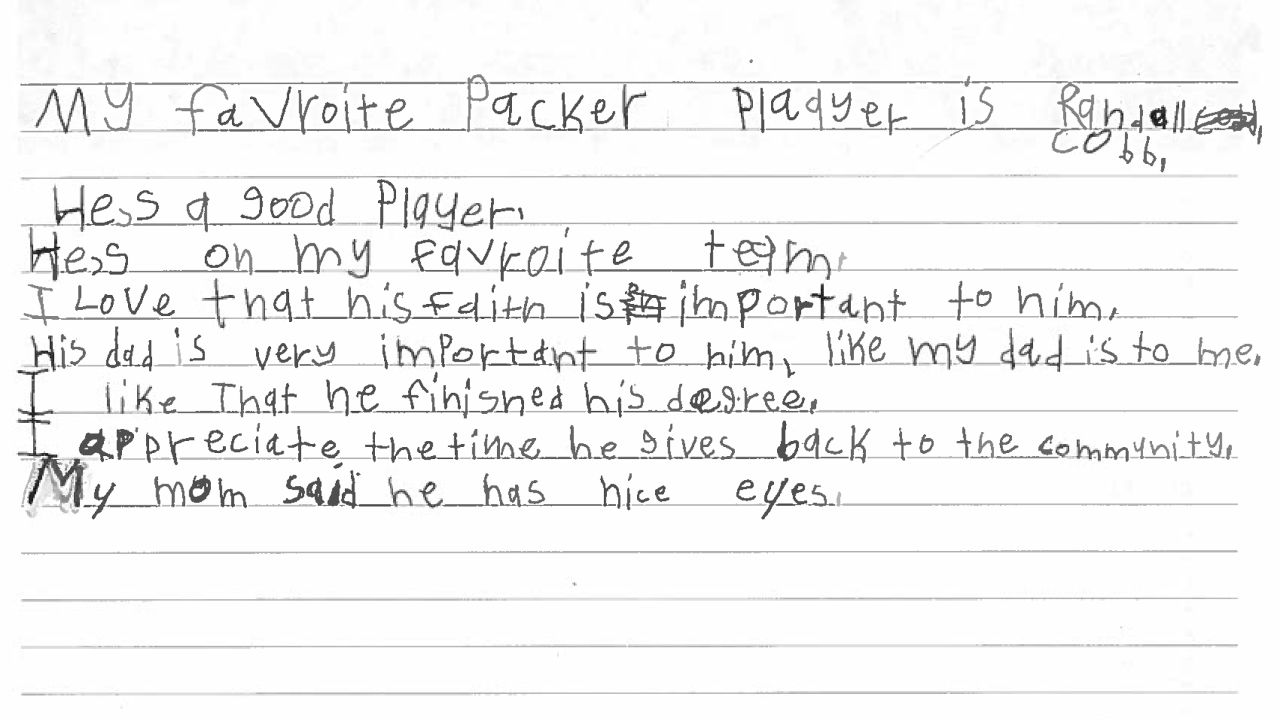 My favroite Packer Plaqyer is Randall
CObb,
He,s a good Player.
He,s on my favroite team.
I Love that his faith is important to him.
His dad is very important to him, like my dad is to me.
I like That he finished his degree.
I appreciate the time he gives back to the community.
My mom said he has nice eyes.